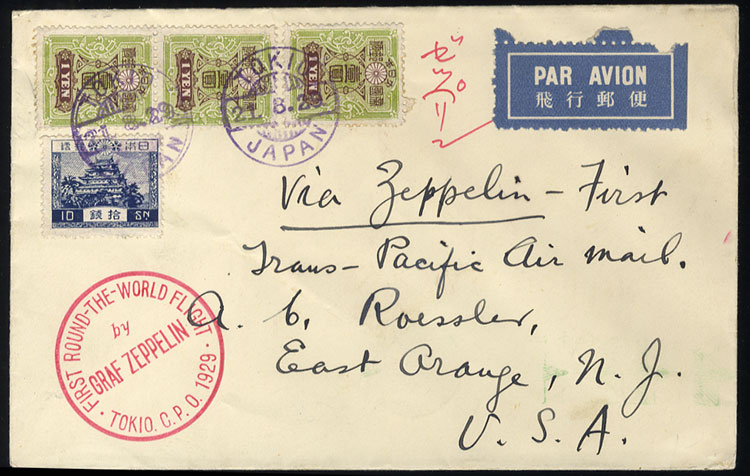 1 YEN
1 YEN
1 YEN
TOKIO
21.8.29
JAPAN
10 錢拾 SN
ゼツペリン
PAR AVION
飛行郵便
Via Zeppelin - First
Trans-Pacific Air mail.
A. C. Roessler,
East Orange, N. J.
U. S. A.
FIRST ROUND-THE-WORLD FLIGHT
by
GRAF ZEPPELIN
TOKIO. C. P. O. 1929.